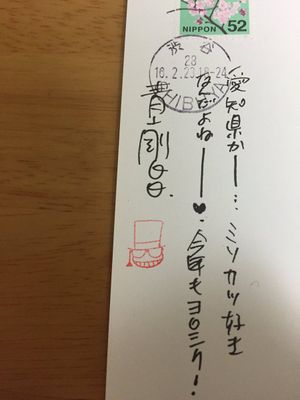 NIPPON 52
渋谷
28
16.2.20.18-24
SHIBUYA
愛知県かー…ミソカツ好き
なんだよねー♥.今年もヨロシク!
青山剛昌.